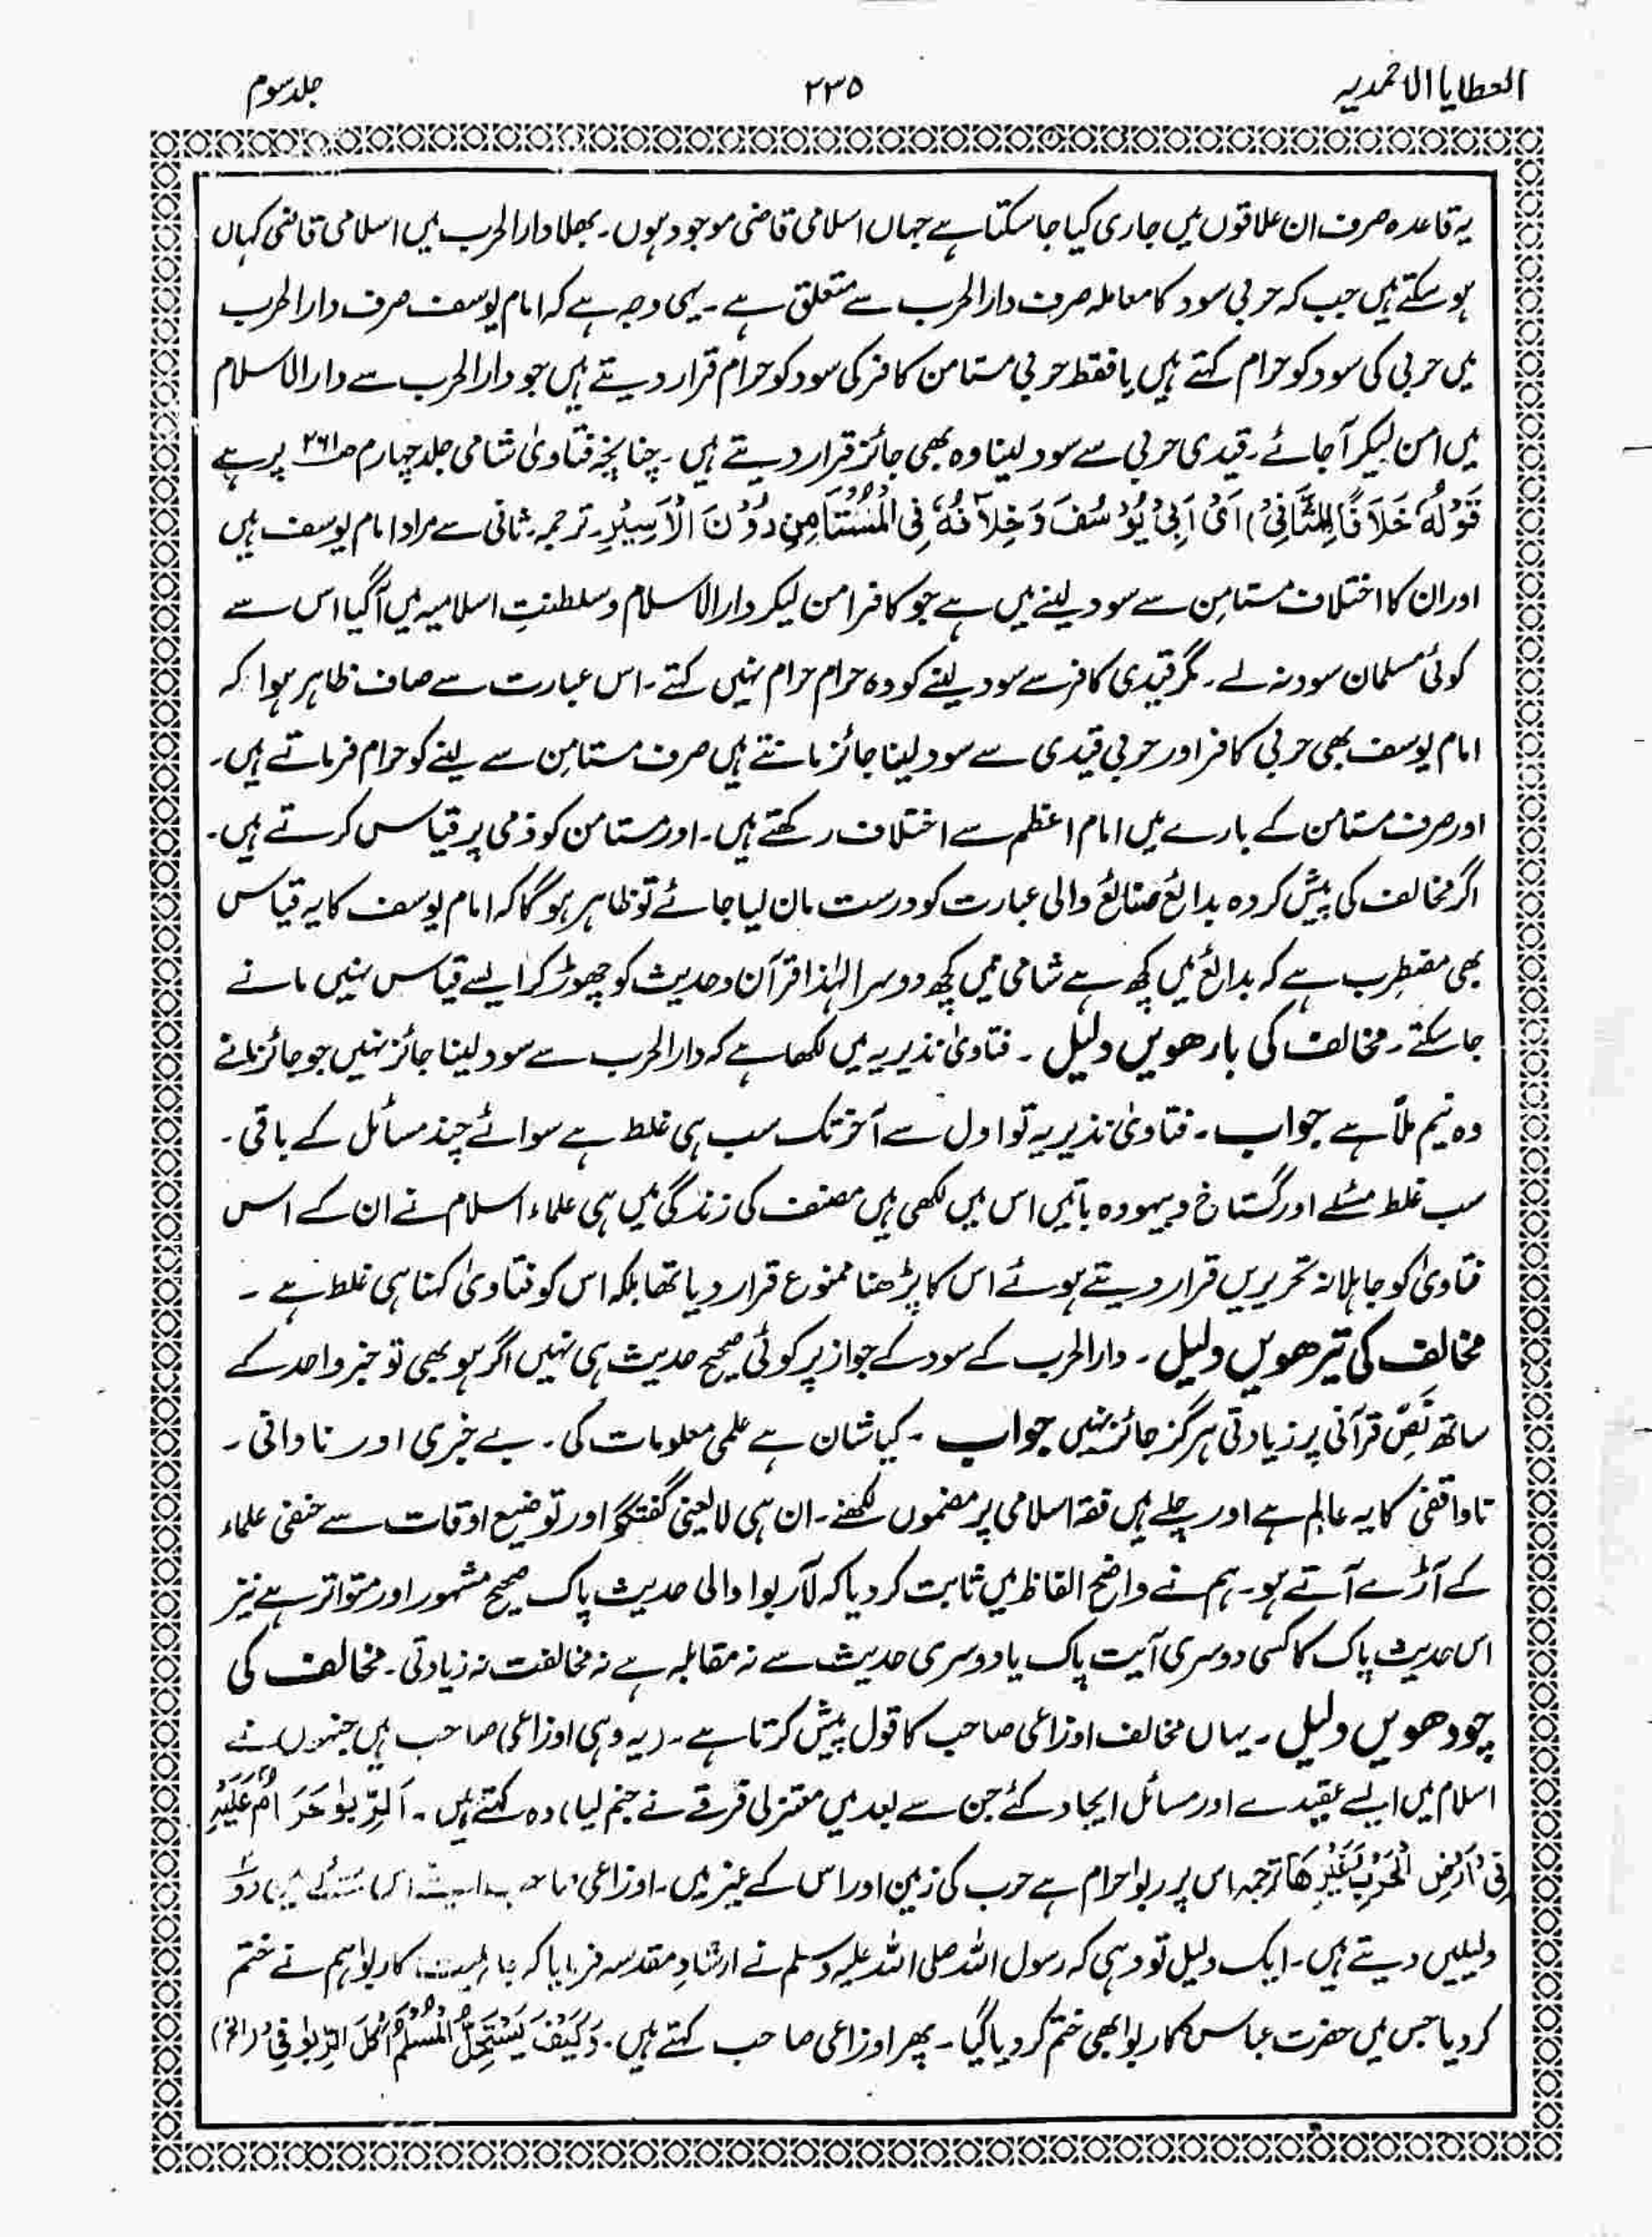 العطایا الاحمدیہ ۲۳۵ جلد سوم
یہ قاعدہ صرف ان علاقوں میں جاری کیا جا سکتا ہے جہاں اسلامی قاضی موجود ہوں۔ بھلا دار الحرب میں اسلامی قاضی کہاں
ہو سکتے ہیں جب کہ حربی سود کا معاملہ صرف دار الحرب سے متعلق ہے۔ یہی وجہ ہے کہ امام یوسف صرف دار الحرب
میں حربی کی سود کو حرام کہتے ہیں یا فقط حربی مستامن کافر کی سود کو حرام قرار دیتے ہیں جو دار الحرب سے دار الاسلام
میں امن لیکر آ جائے۔ قیدی حربی سے سود لینا وہ بھی جائز قرار دیتے ہیں۔ چنانچہ فتاویٰ شامی جلد چہارم صـ۲۶۱ پر ہے
قَوْلُهٗ خَلَافًا لِلثَّانِیْ) اَیْ اَبِیْ یُوْسُفَ وَخِلَافُهٗ فِی الْمُسْتَامِنِ دُوْنَ الْاَسِیْرِ۔ ترجمہ۔ ثانی سے مراد امام یوسف ہیں
اور ان کا اختلاف مستامِن سے سود لینے میں ہے جو کافر امن لیکر دار الاسلام وسلطنتِ اسلامیہ میں آگیا اس سے
کوئی مسلمان سود نہ لے۔ مگر قیدی کافر سے سود لینے کو وہ حرام حرام نہیں کہتے۔ اس عبارت سے صاف ظاہر ہوا کہ
امام یوسف بھی حربی کافر اور حربی قیدی سے سود لینا جائز مانتے ہیں صرف مستامِن سے لینے کو حرام فرماتے ہیں۔
اور صرف مستامن کے بارے میں امام اعظم سے اختلاف رکھتے ہیں۔ اور مستامن کو ذمی پر قیاس کرتے ہیں۔
اگر مخالف کی پیش کردہ بدائع صنائع والی عبارت کو درست مان لیا جائے تو ظاہر ہو گا کہ امام یوسف کا یہ قیاس
بھی مضطرِب ہے کہ بدائع میں کچھ ہے شامی میں کچھ دوسرا لہٰذا قرآن وحدیث کو چھوڑ کر ایسے قیاس نہیں مانے
جا سکتے۔ مخالف کی بارھویں دلیل ۔ فتاویٰ نذیریہ میں لکھا ہے کہ دار الحرب سے سود لینا جائز نہیں جو جائز مانے
وہ نیم ملّا ہے جواب ۔ فتاویٰ نذیریہ تو اول سے آخر تک سب ہی غلط ہے سوائے چند مسائل کے باقی۔
سب غلط مسئلے اور گستاخ وبیہودہ باتیں اس میں لکھی ہیں مصنف کی زندگی میں ہی علماء اسلام نے ان کے اس
فتاویٰ کو جاہلانہ تحریریں قرار دیتے ہوئے اس کا پڑھنا ممنوع قرار دیا تھا بلکہ اس کو فتاویٰ کہنا ہی غلط ہے ۔
مخالف کی تیرھویں دلیل ۔ دار الحرب کے سود کے جواز پر کوئی صحیح حدیث ہی نہیں اگر ہو بھی تو خبر واحد کے
ساتھ نَصِّ قرآنی پر زیادتی ہرگز جائز نہیں جواب ۔ کیا شان ہے علمی معلومات کی۔ بے خبری اور نادانی ۔
ناواقفی کا یہ عالم ہے اور چلے ہیں فقہ اسلامی پر مضموں لکھنے۔ ان ہی لایعنی گفتگو اور توضیع اوقات سے حنفی علماء
کے آڑے آتے ہو۔ ہم نے واضح الفاظ میں ثابت کر دیا کہ لَآ ربوا والی حدیث پاک صحیح مشہور اور متواتر ہے نیز
اس حدیث پاک کا کسی دوسری آیت پاک یا دوسری حدیث سے نہ مقابلہ ہے نہ مخالفت نہ زیادتی۔ مخالف کی
چودھویں دلیل ۔ یہاں مخالف اوزاعی صاحب کا قول پیش کرتا ہے۔ (یہ وہی اوزاعی صاحب ہیں جنہوں نے
اسلام میں ایسے عقیدے اور مسائل ایجاد کئے جن سے بعد میں معتزلی فرقے نے جنم لیا) وہ کہتے ہیں۔ اَلرِّبٰوا حَرَامٌ عَلَیْہِ
فِیْ اَرْضِ الْحَرْبِ وَغَیْرِهَا ترجمہ اس پر ربوا حرام ہے حرب کی زمین اور اس کے غیر میں۔ اوزاعی صاحب اس مسئلے میں دوٗ
دلیلیں دیتے ہیں۔ ایک دلیل تو وہی کہ رسول اللہ صلی اللہ علیہ وسلم نے ارشادِ مقدسہ فرمایا کہ جاہلیت کا ربوا ہم نے ختم
کر دیا جس میں حضرت عباسؓ کا ربوا بھی ختم کر دیا گیا۔ پھر اوزاعی صاحب کہتے ہیں۔ وَکَیْفَ یَسْتَحِلُّ الْمُسْلِمُ اَکْلَ الرِّبٰوا فِیْ (الخ)